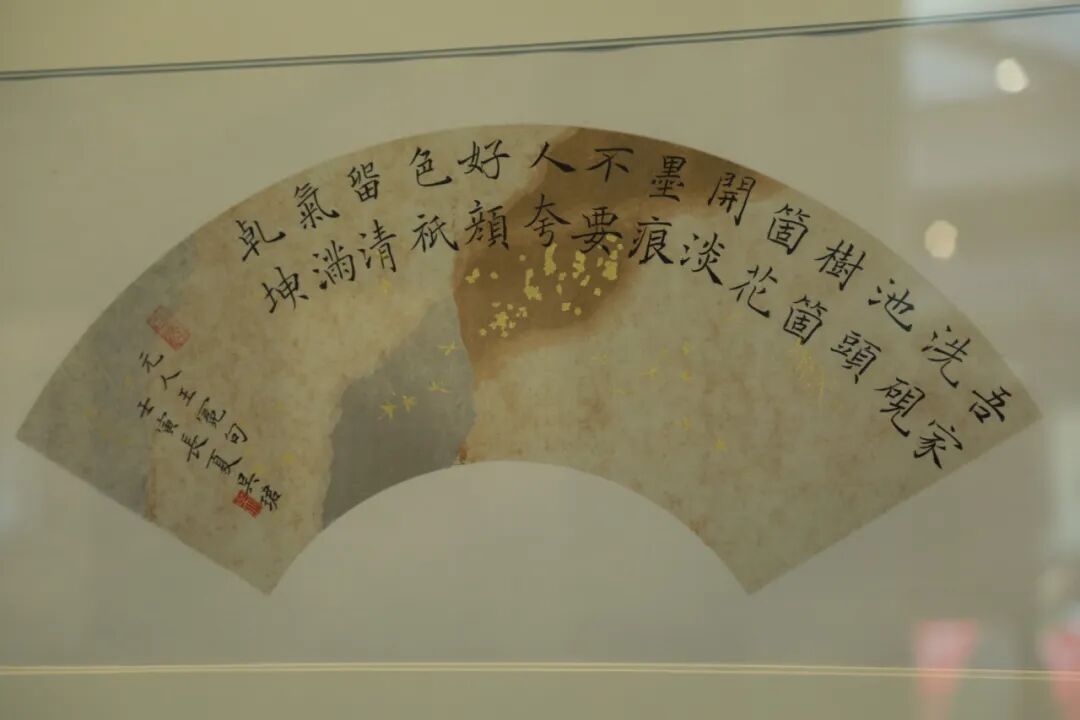 吾家
洗硯
池頭
樹箇
箇花
開淡
墨痕
不要
人夸
好顔
色祇
留清
氣滿
乹坤
元人王冕句
壬寅長夏吴